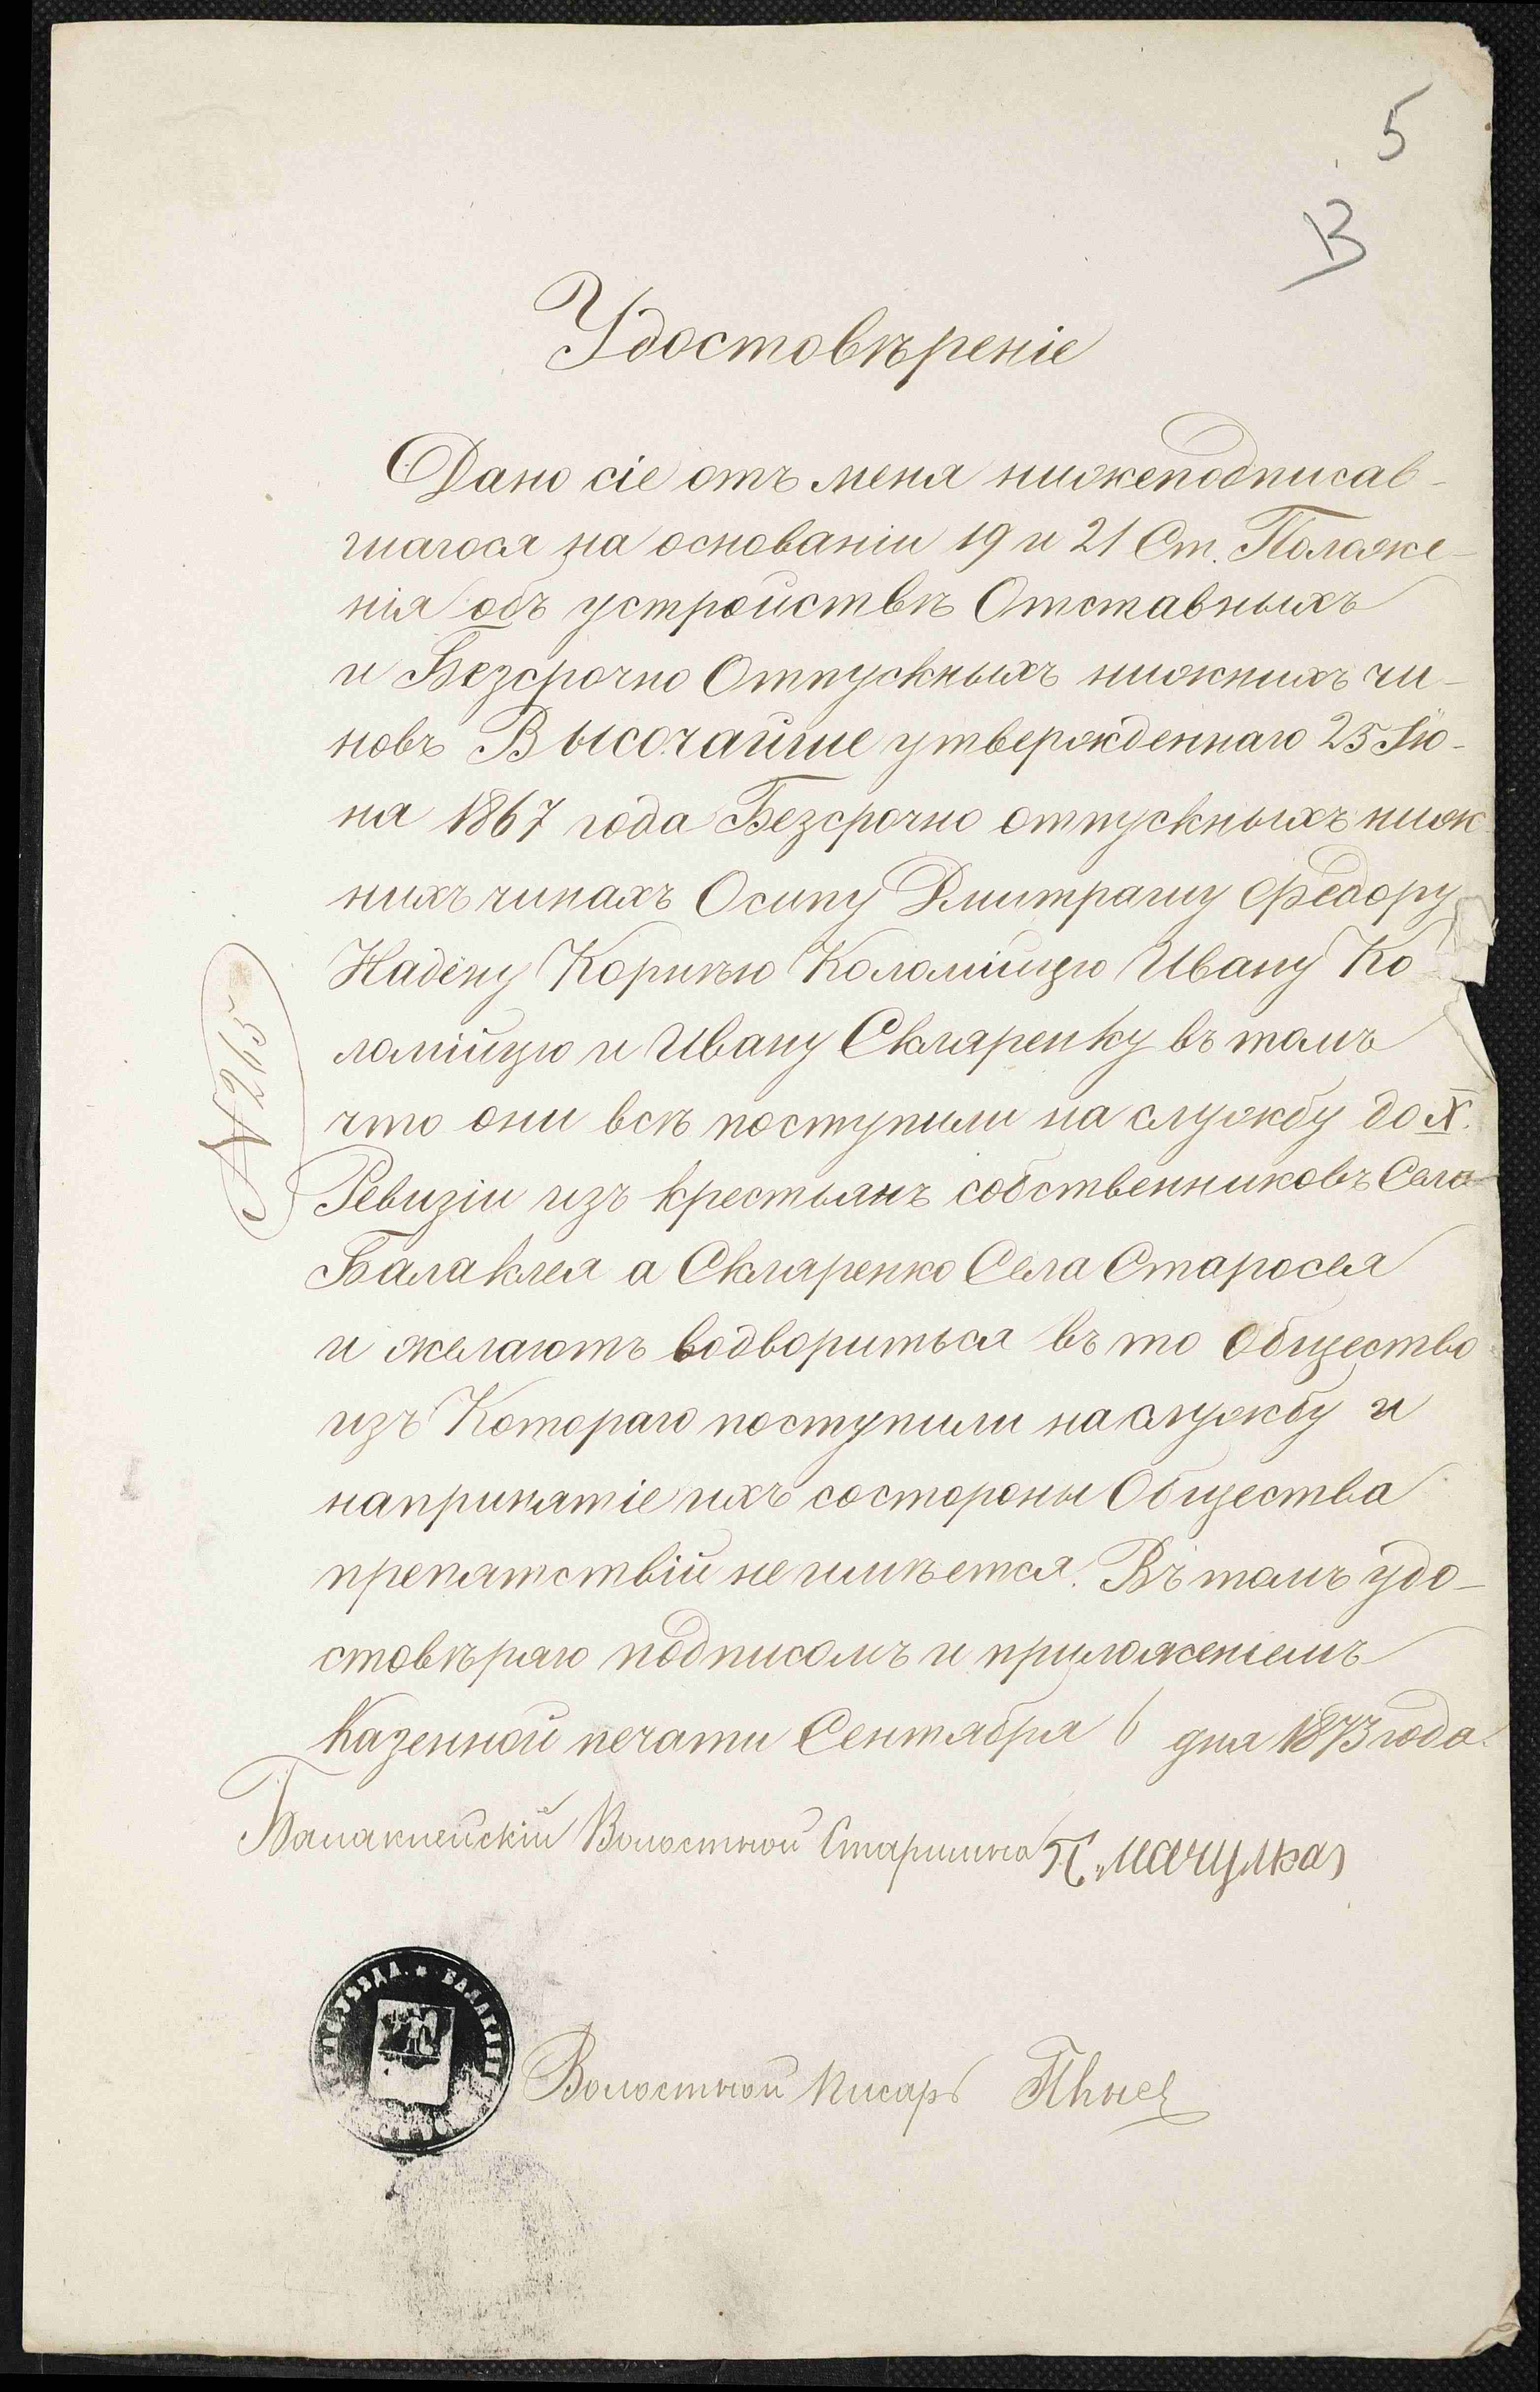 5
13
Удостовѣреніе
Дано сіе отъ меня нижеподписав-
шагося на основаніи 19 и 21 Ст. Положе-
нія объ устройствѣ Отставныхъ
и Безсрочно Отпускныхъ нижнихъ чи-
новъ Высочайше утвержденнаго 25 Iю-
ня 1867 года Безсрочно отпускныхъ ниж
нихъ чинахъ Осипу Дмитрашу Федору
Надёну Корнѣю Коломійцю Ивану Ко
ломійцю и Ивану Скляренку въ томъ
что они всѣ поступили на службу до X.
Ревизіи изъ крестьянъ собственниковъ Села
Балаклея а Скляренко Села Старосея
и желаютъ водвориться въ то Общество
изъ Котораго поступили на службу и
напринятіе ихъ состороны Общества
препятствій не имѣется. Въ томъ удо-
стовѣряю подписомъ и приложеніемъ
Казенной печати Сентября 6 дня 1873 года.
№ 245
Балаклейскій Волостной Старшина П. Мачулка
УѢЗДА. * БАЛАКЛЕЙ
Волостной Писарь